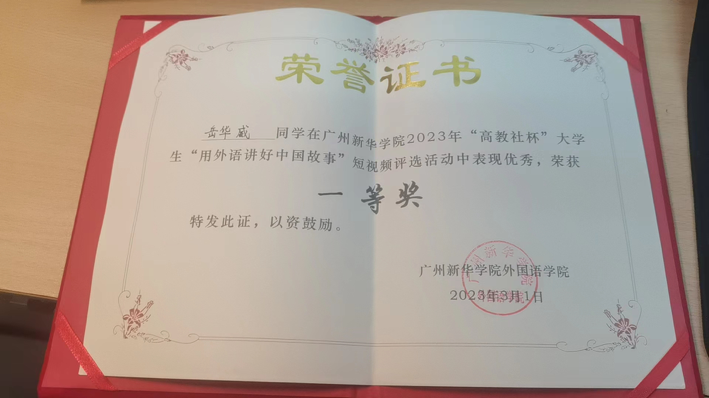 荣誉证书
岳华威 同学在广州新华学院2023年“高教社杯”大学
生“用外语讲好中国故事”短视频评选活动中表现优秀，荣获
一等奖
特发此证，以资鼓励。
广州新华学院外国语学院
2023年3月1日